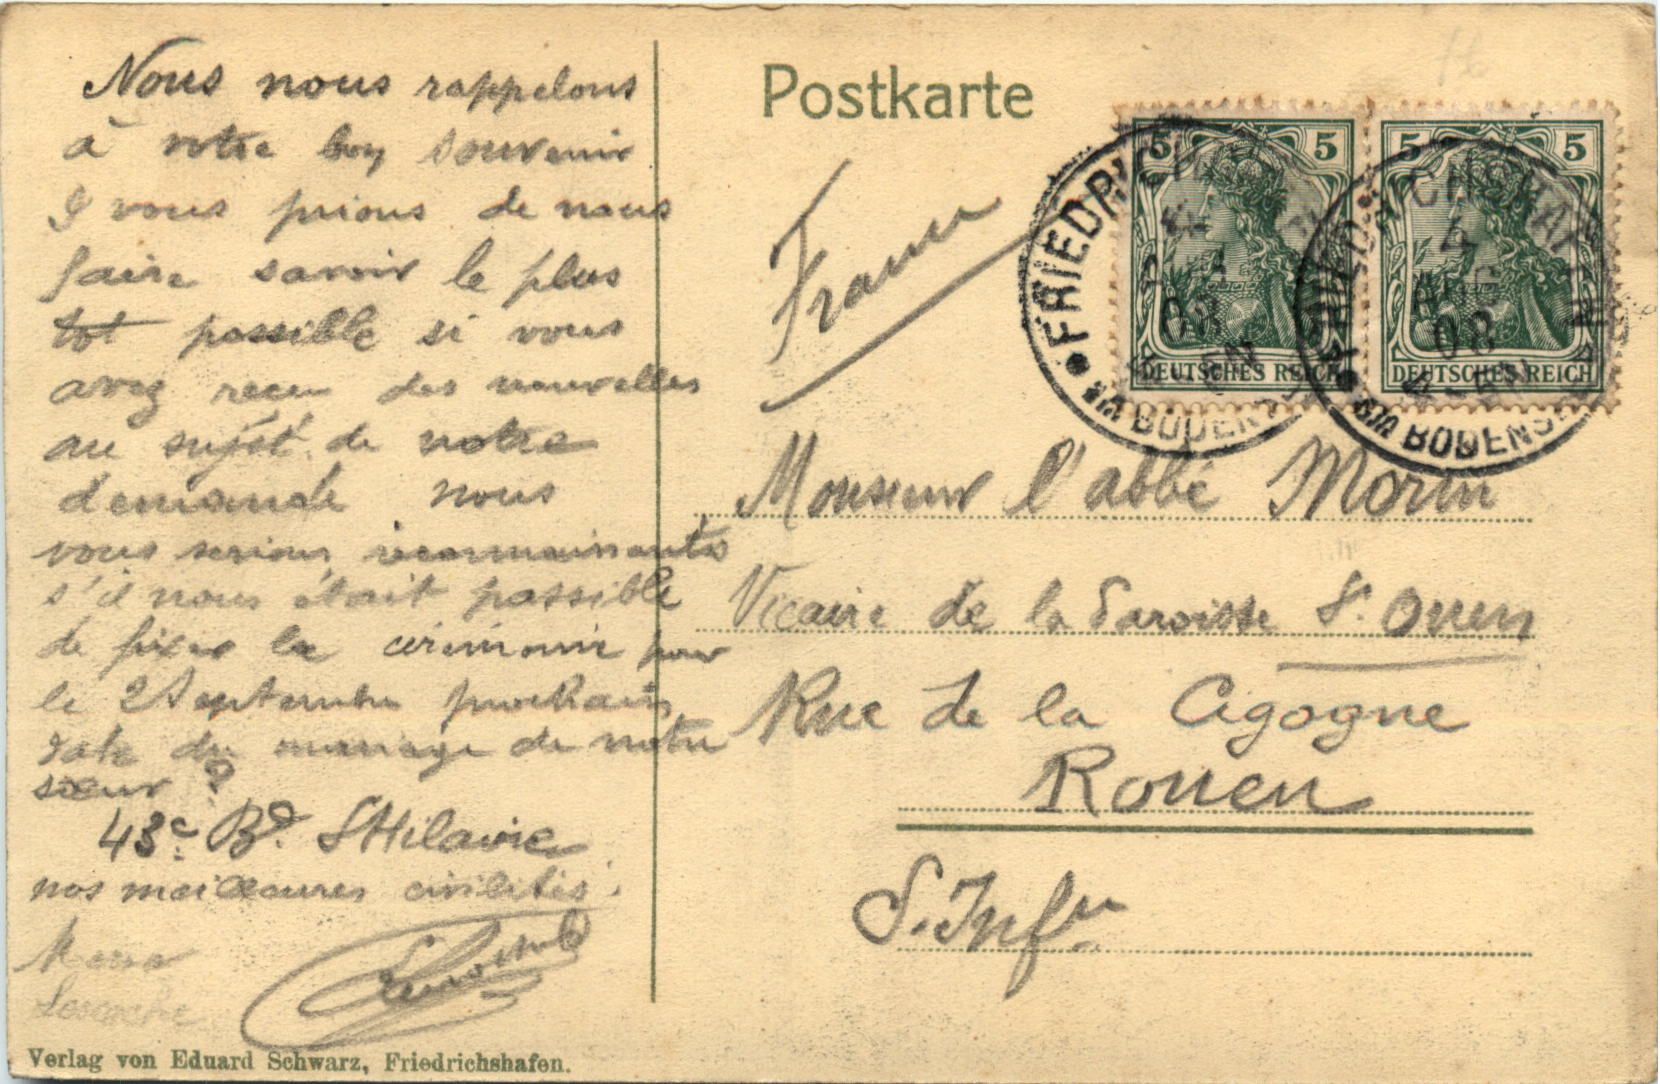 Nous nous rappelons
à votre bon souvenir
& vous prions de nous
faire savoir le plus
tot possible si vous
avez recu des nouvelles
au sujet de notre
demande nous
vous serions reconnaissants
s'il nous était possible
de fixer la cérémonie pour
le 2 Septembre prochain
date du mariage de notre
sœur ?
43c Bd. St Hilaire
nos meilleures civilités.
Verlag von Eduard Schwarz, Friedrichshafen.
Postkarte
France
5 5
5 5
DEUTSCHES REICH
DEUTSCHES REICH
FRIEDRICHSHAFEN
4
AUG
08
BODENS
Monsieur l'abbé Morin
Vicaire de la Paroisse St. Ouen
Rue de la Cigogne
Rouen
S. Infre